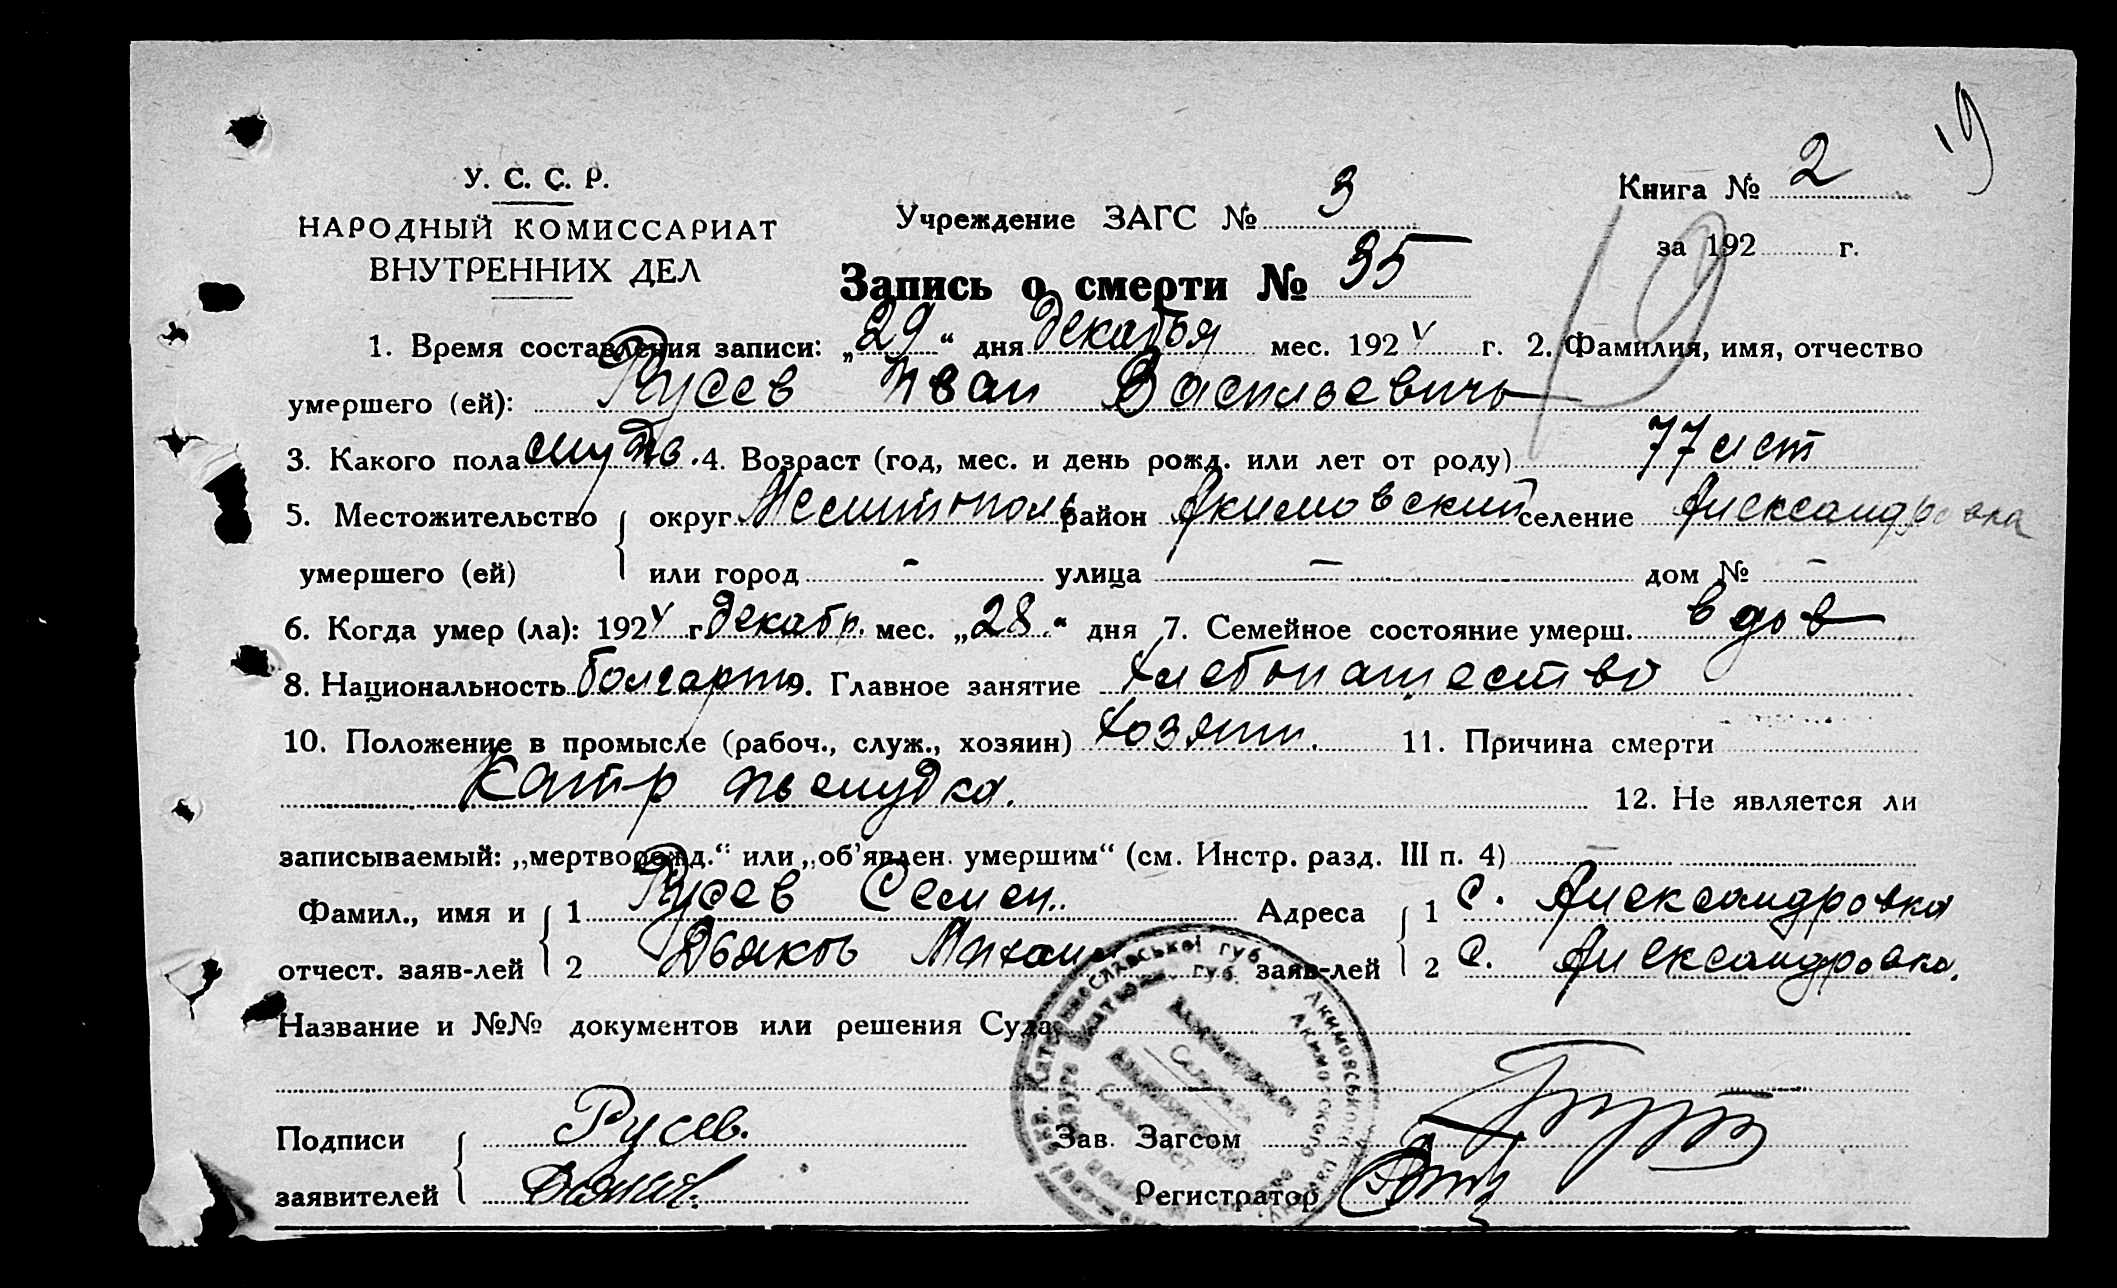 19
У. С. С. Р.
НАРОДНЫЙ КОМИССАРИАТ
ВНУТРЕННИХ ДЕЛ
Учреждение ЗАГС № 3
Книга № 2
за 192 г.
19
Запись о смерти № 35
1. Время составления записи: „29“ дня декабря мес. 1924 г. 2. Фамилия, имя, отчество
умершего (ей): Русев Иван Васильевичь
3. Какого пола мужс. 4. Возраст (год, мес. и день рожд. или лет от роду) 77 лет
5. Местожительство округ Мелитополь район Акимовский селение Александровка
умершего (ей) или город - улица — дом № -
6. Когда умер (ла): 1924 г. декабр. мес. „28“ дня 7. Семейное состояние умерш. вдов
8. Национальность болгарин 9. Главное занятие хлебопашество
10. Положение в промысле (рабоч., служ., хозяин) хозяин. 11. Причина смерти
Катар желудка. 12. Не является ли
записываемый: „мертворожд.“ или „об’явлен. умершим“ (см. Инстр. разд. III п. 4) —
Фамил., имя и 1 Русев Семен. Адреса 1 с. Александровка
отчест. заяв-лей 2 Дьяков Михаил заяв-лей 2 с. Александровка.
Название и №№ документов или решения Суда
Подписи Русев. Зав. Загсом
заявителей Регистратор